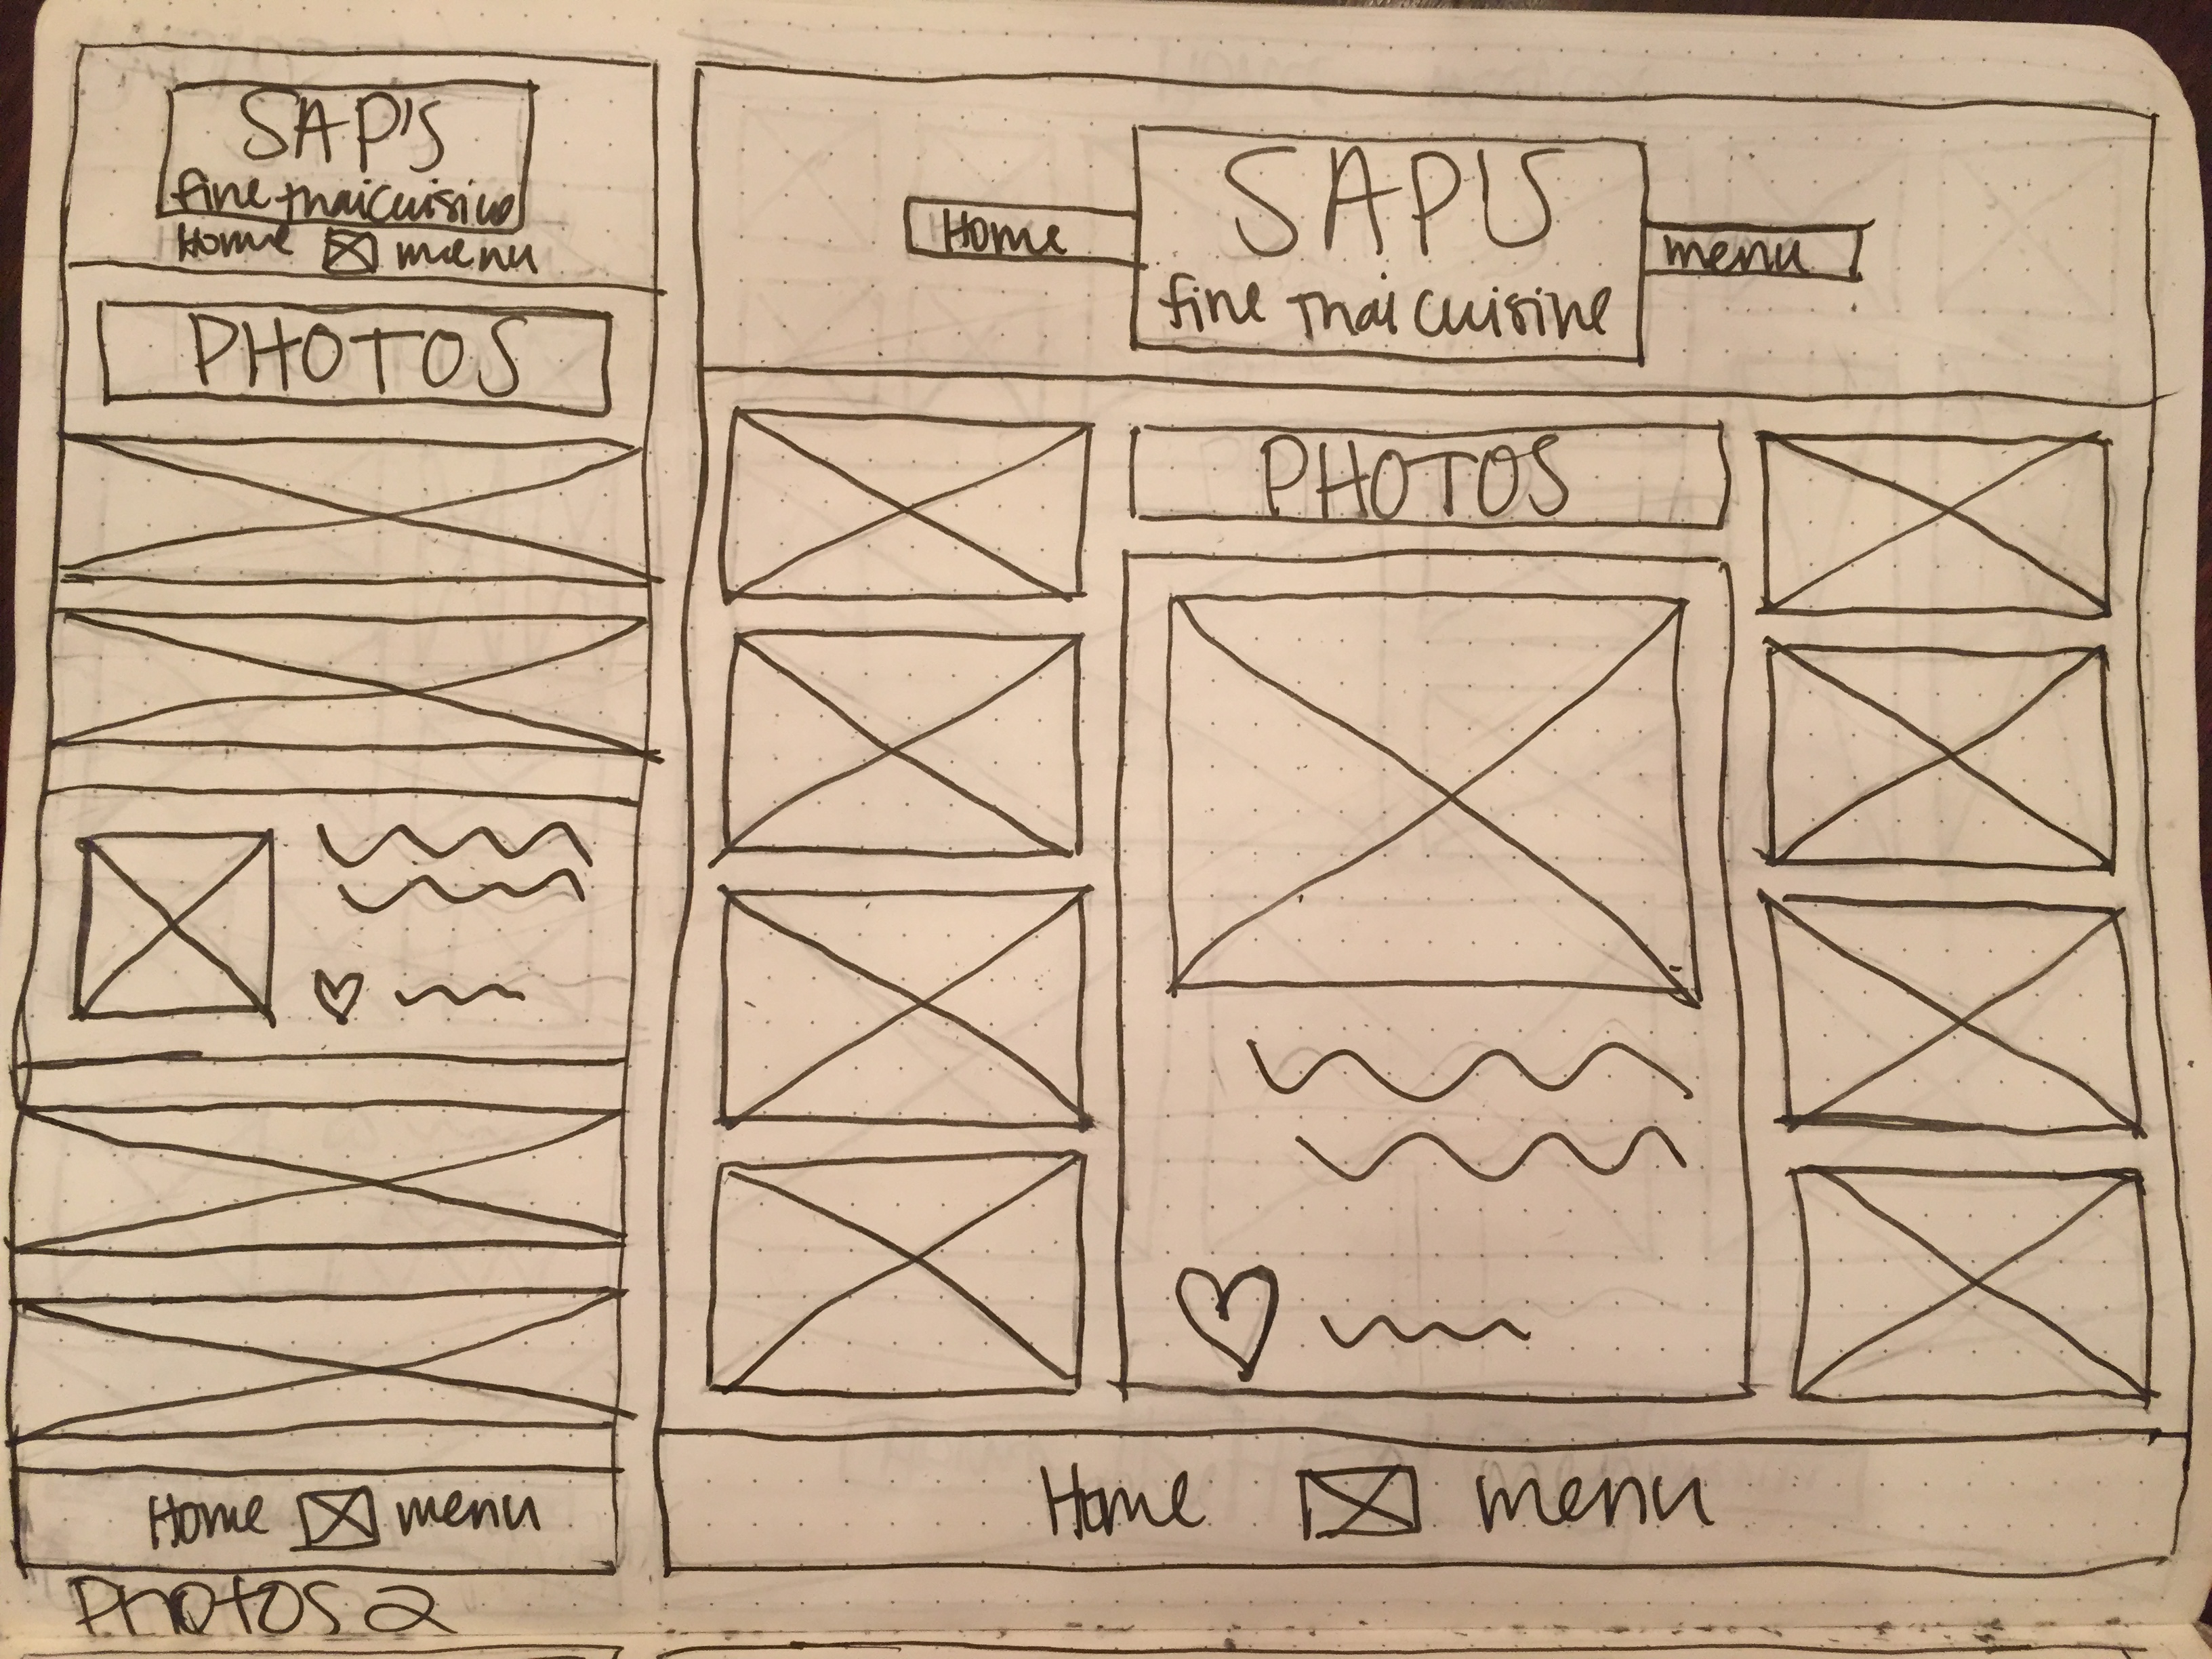 SAP'S
fine thai cuisine
Home menu
PHOTOS
Home menu
Photos 2
Home
SAP'S
fine Thai cuisine
menu
PHOTOS
Home menu